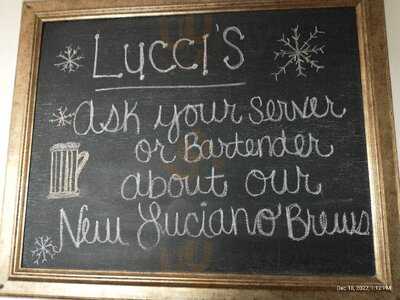 Lucci's
ask your server
or Bartender
about our
New Luciano Brews
Dec 18, 2022, 1:12 PM